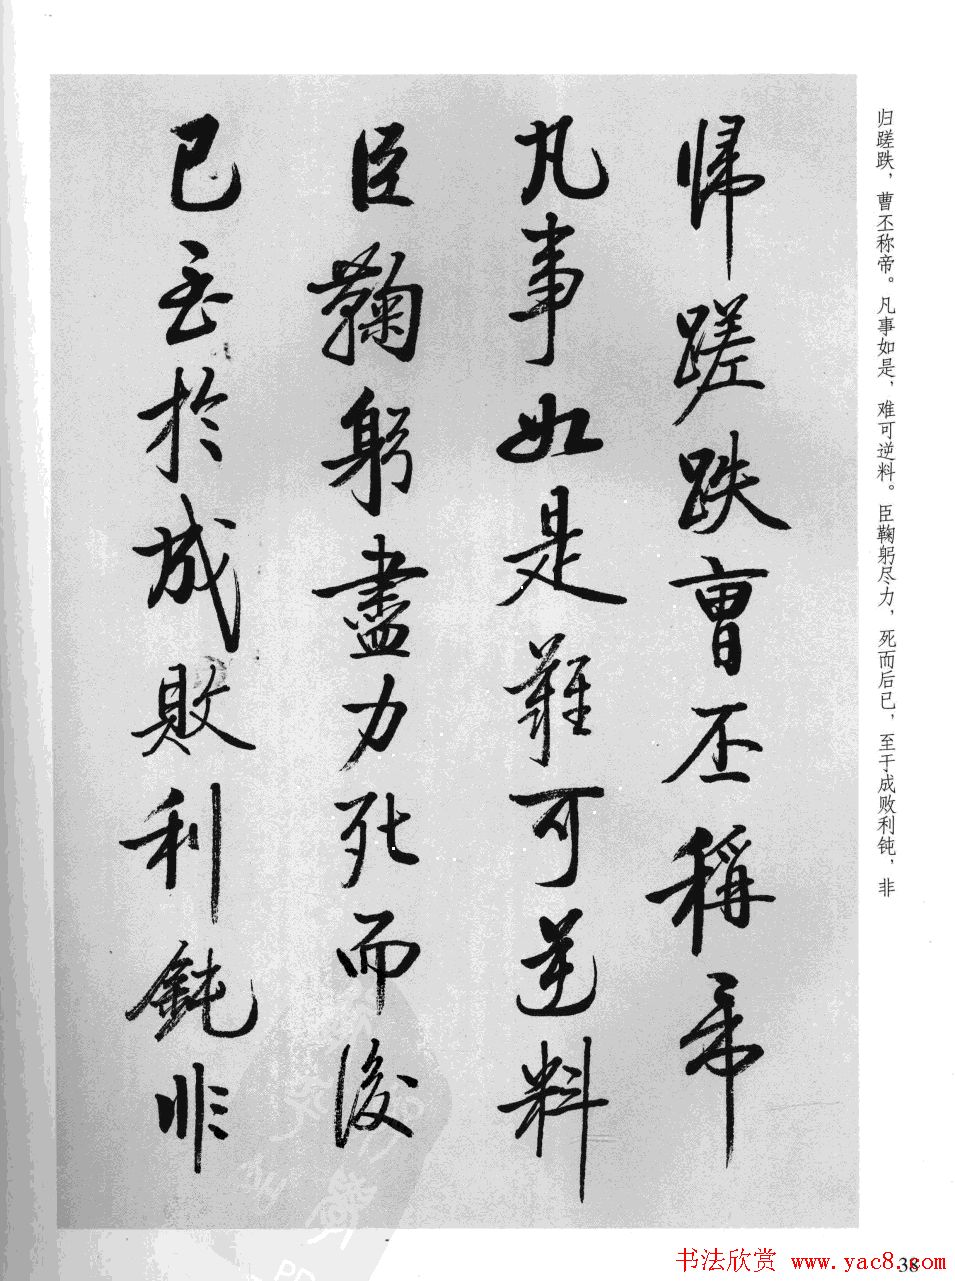 归蹉跌，曹丕称帝。凡事如是，难可逆料。臣鞠躬尽力，死而后已，至于成败利钝，非
歸蹉跌曹丕稱帝
凡事如是難可逆料
臣鞠躬盡力死而後
已至於成敗利鈍非
38
书法欣赏 www.yac8.com